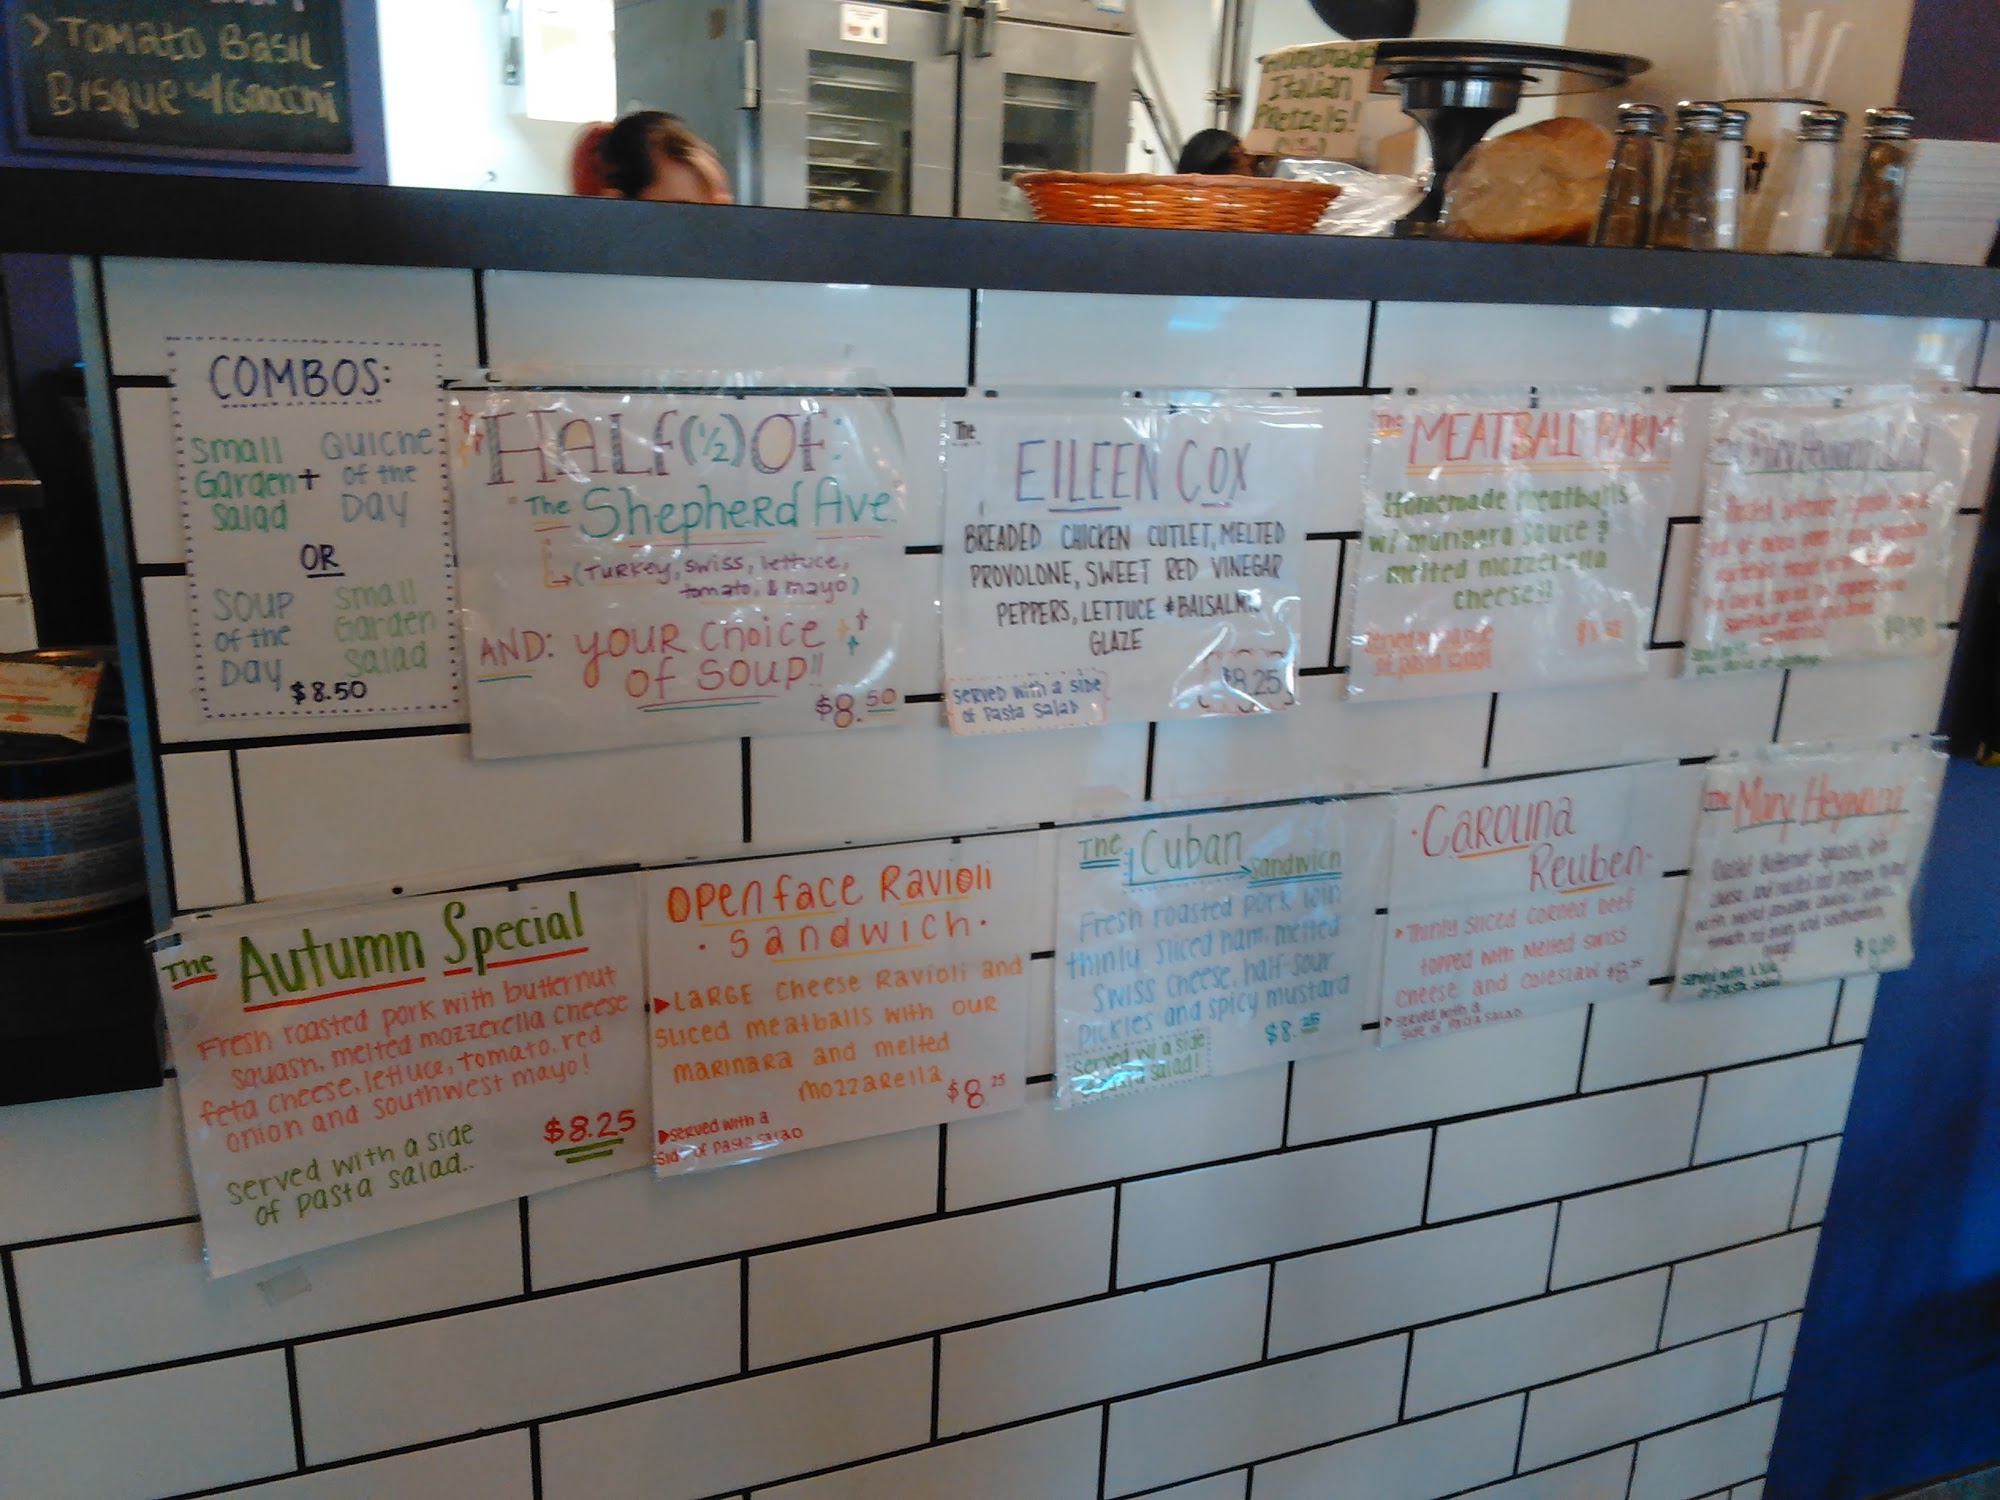 > Tomato Basil
Bisque w/ Gnocchi
Homemade
Italian
Pretzels!
COMBOS:
Small Garden Salad + Quiche of the Day
OR
Soup of the Day Small Garden Salad
$8.50
Half (1/2) Of:
"The Shepherd Ave."
(Turkey, swiss, lettuce,
tomato, & mayo)
AND: your choice
of soup!!
$8.50
The
EILEEN COX
BREADED CHICKEN CUTLET, MELTED
PROVOLONE, SWEET RED VINEGAR
PEPPERS, LETTUCE & BALSALMIC
GLAZE
$8.25
served with a side
of pasta salad
The
MEATBALL PARM
Homemade meatballs
w/ marinara sauce &
melted mozzerella
cheese!!
served w/ a side
of pasta salad!
The Autumn Special
Fresh roasted pork with butternut
squash, melted mozzerella cheese
feta cheese, lettuce, tomato, red
onion and southwest mayo!
$8.25
served with a side
of pasta salad..
Open face Ravioli
· Sandwich ·
Large cheese Ravioli and
sliced meatballs with our
marinara and melted
mozzarella
$8.25
served with a
side of pasta salad
The Cuban
sandwich
Fresh roasted pork loin
thinly sliced ham, melted
Swiss cheese, half-sour
pickles and spicy mustard
$8.25
served w/ a side
pasta salad!
· Carolina
Reuben ·
Thinly sliced corned beef
topped with melted Swiss
cheese and coleslaw $8.25
served with a
side of pasta salad
The Mary Heyward
served with a side
of pasta salad